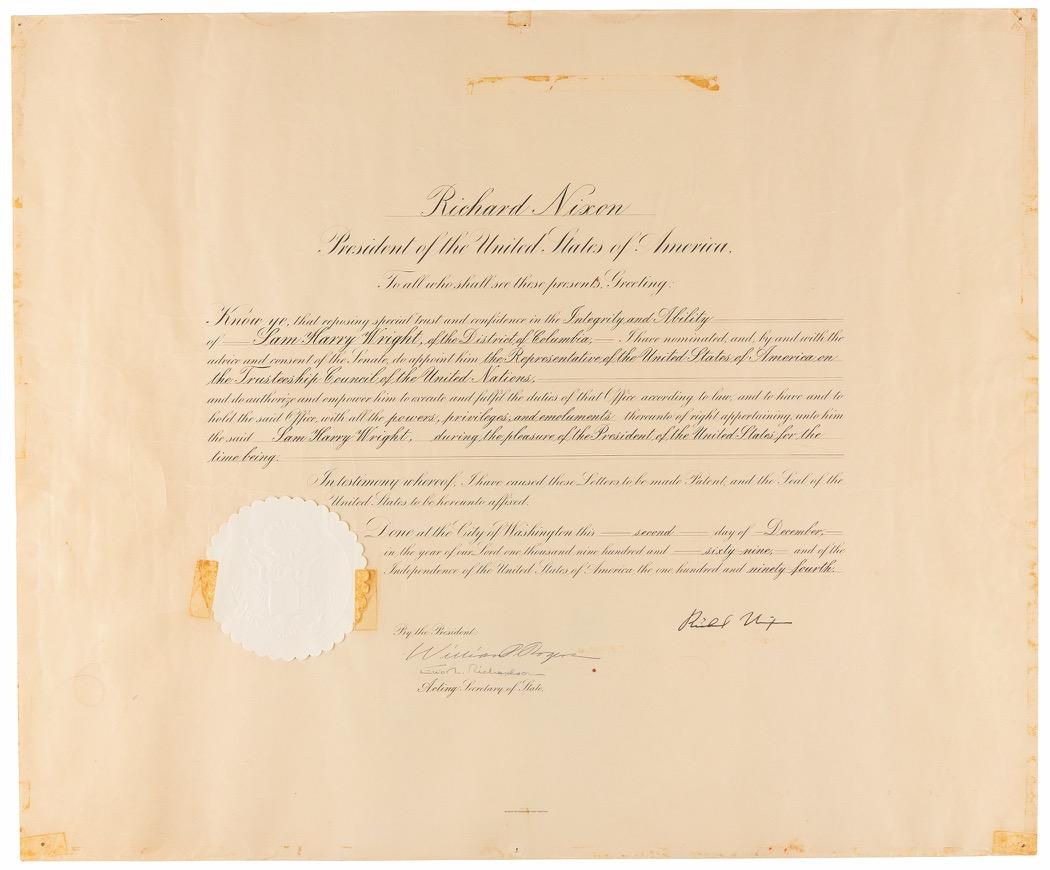 Richard Nixon
President of the United States of America.
To all who shall see these presents, Greeting:
Know ye, that reposing special trust and confidence in the Integrity and Ability
of Sam Harry Wright, of the District of Columbia, I have nominated, and, by and with the
advice and consent of the Senate, do appoint him the Representative of the United States of America on
the Trusteeship Council of the United Nations,
and do authorize and empower him to execute and fulfil the duties of that Office according to law, and to have and to
hold the said Office, with all the powers, privileges, and emoluments thereunto of right appertaining, unto him
the said Sam Harry Wright, during the pleasure of the President of the United States for the
time being.
In testimony whereof, I have caused these Letters to be made Patent, and the Seal of the
United States to be hereunto affixed.
Done at the City of Washington this second day of December,
in the year of our Lord one thousand nine hundred and sixty-nine, and of the
Independence of the United States of America the one hundred and ninety-fourth.
Richard Nixon
By the President:
William P. Rogers
Elliot L. Richardson
Acting Secretary of State.